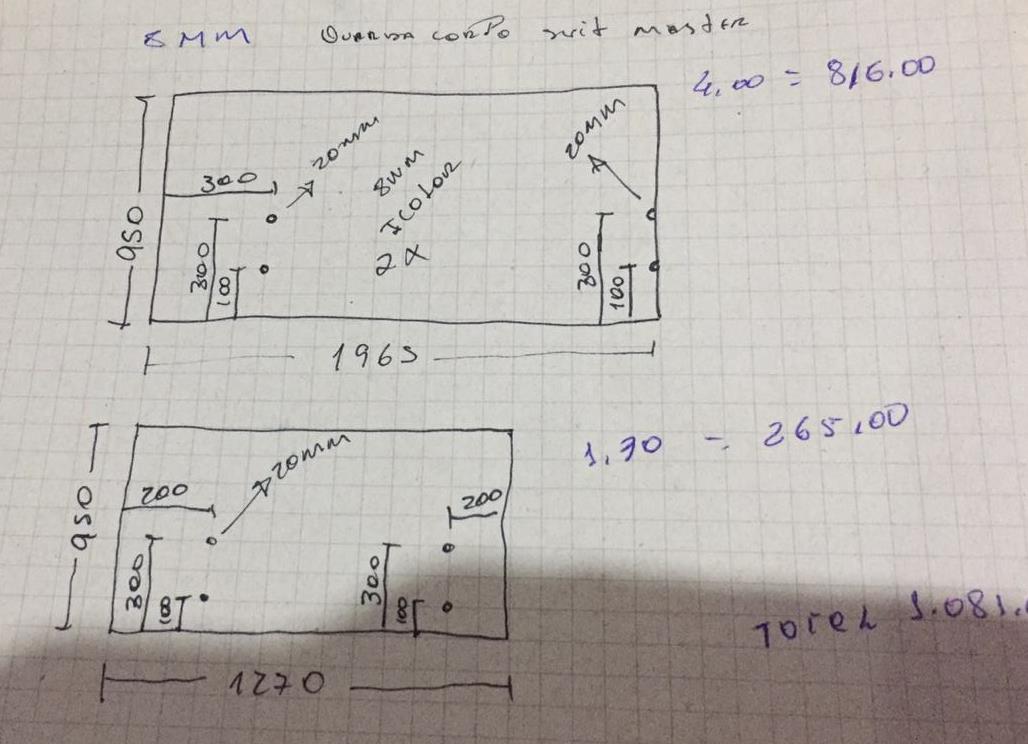 8 MM GUARDA CORPO SUIT MASTER
4,00 = 816.00
20MM
20MM
300
8MM
INCOLOR
2X
950
300
100
300
100
1965
1,30 = 265,00
20MM
200
200
950
300
100
300
100
1270
TOTAL 1.081.